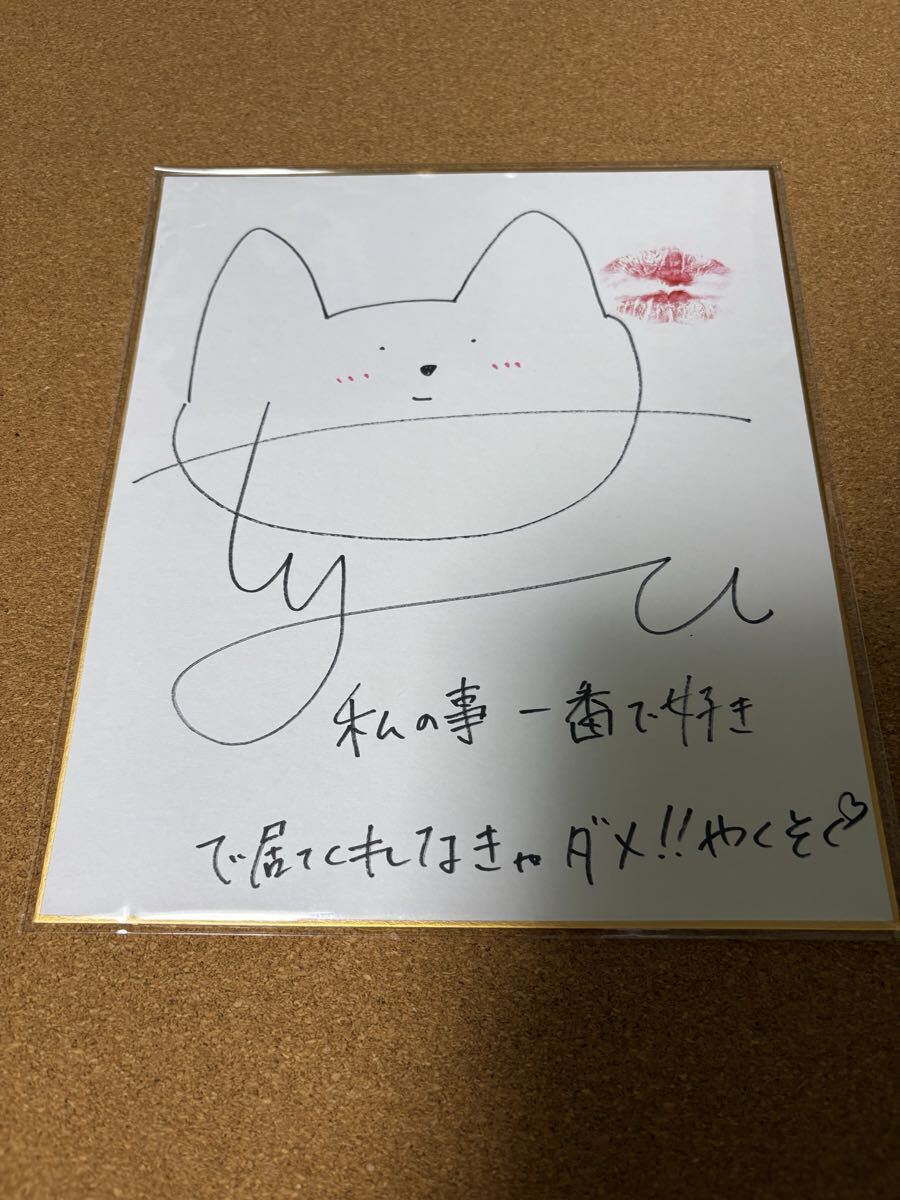 私の事 一番で好き
で居てくれてなきゃ ダメ!!やくそく♡